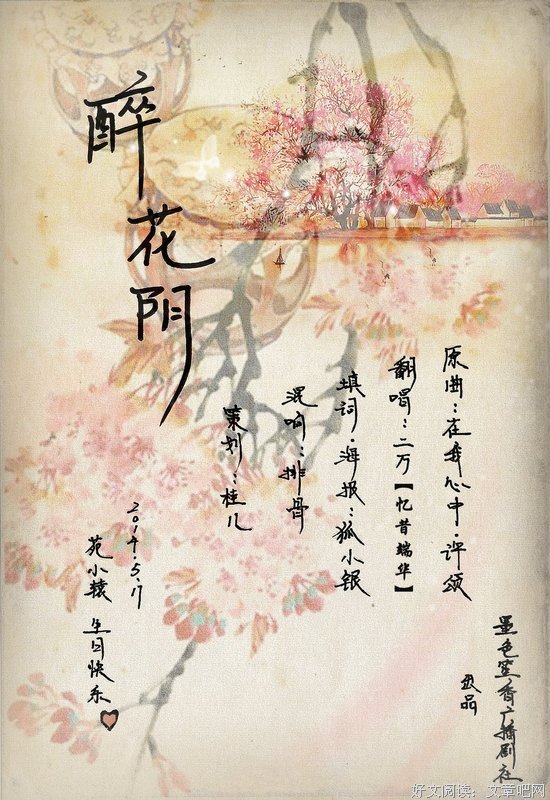 醉花阴
原曲：在我心中·许颂
翻唱：二万【忆昔端华】
填词·海报：狐小银
混响：排骨
策划：桂儿
2014.5.17
苑小辕 生日快乐
墨色笙香广播剧社
出品
好文阅读：文章吧网